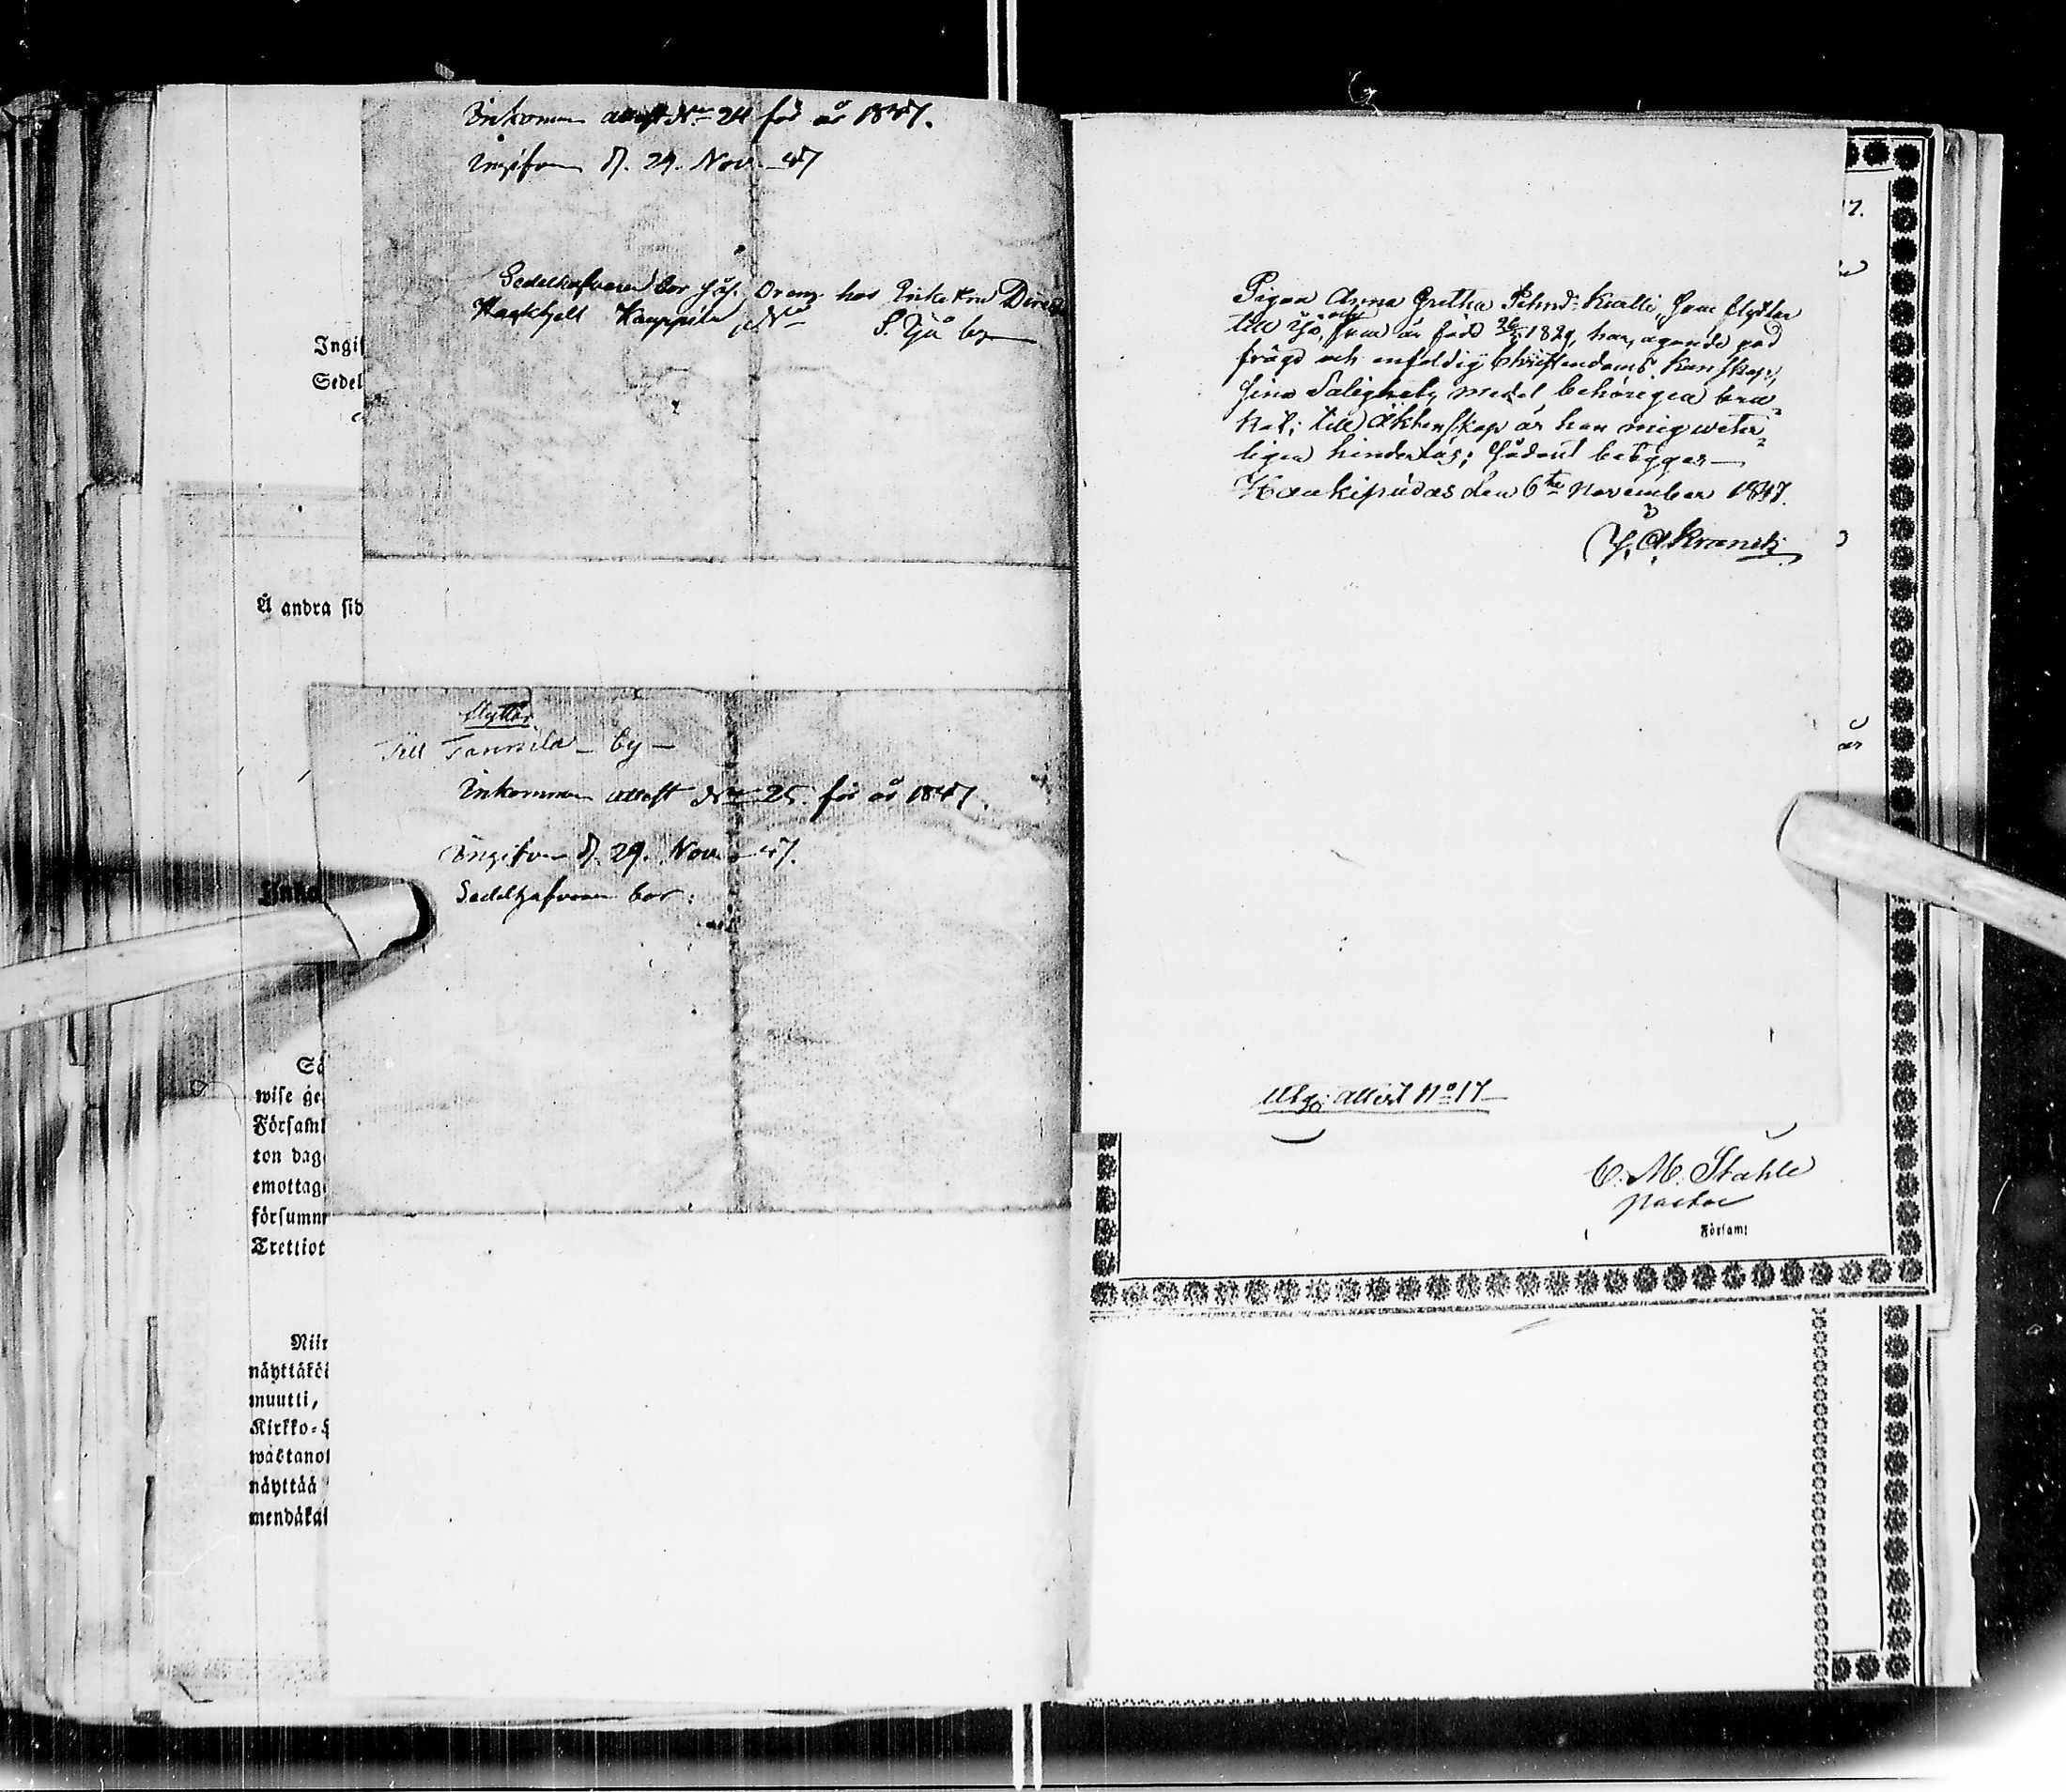 Inkommen attest N:o 24 för år 1847.
Ingifven d. 29. Nov. -47
Sedelhafvaren bor hos
Kauppila N:o S. Ijå by
Ingif
Sedel
Å andra sid
flyttar
Till Tannila by
Inkommen attest N:o 25. för år 1847.
Ingifven d. 29. Nov. -47.
Sedelhafvaren bor:
Inko
Så
wise ge
Församl
ton dag
emottag
försumm
Trettiot
Niir
näyttäköi
muutti,
Kirkko=H
wastanot
näyttää
mendäkäi
Pigan Anna Gretha som flyttar
till Ijo, som är född 1829, har, egande god
frägd och enfaldig Christendoms Kunskap,
sina Salighets medel behörigen bru-
kat; till Äktenskap är hon mig veter-
ligen hinderlös; Sådant betygges
Haukipudas den 6te November 1847.
Utg: attest No 17
C. M. Stahle
Pastor
Församl